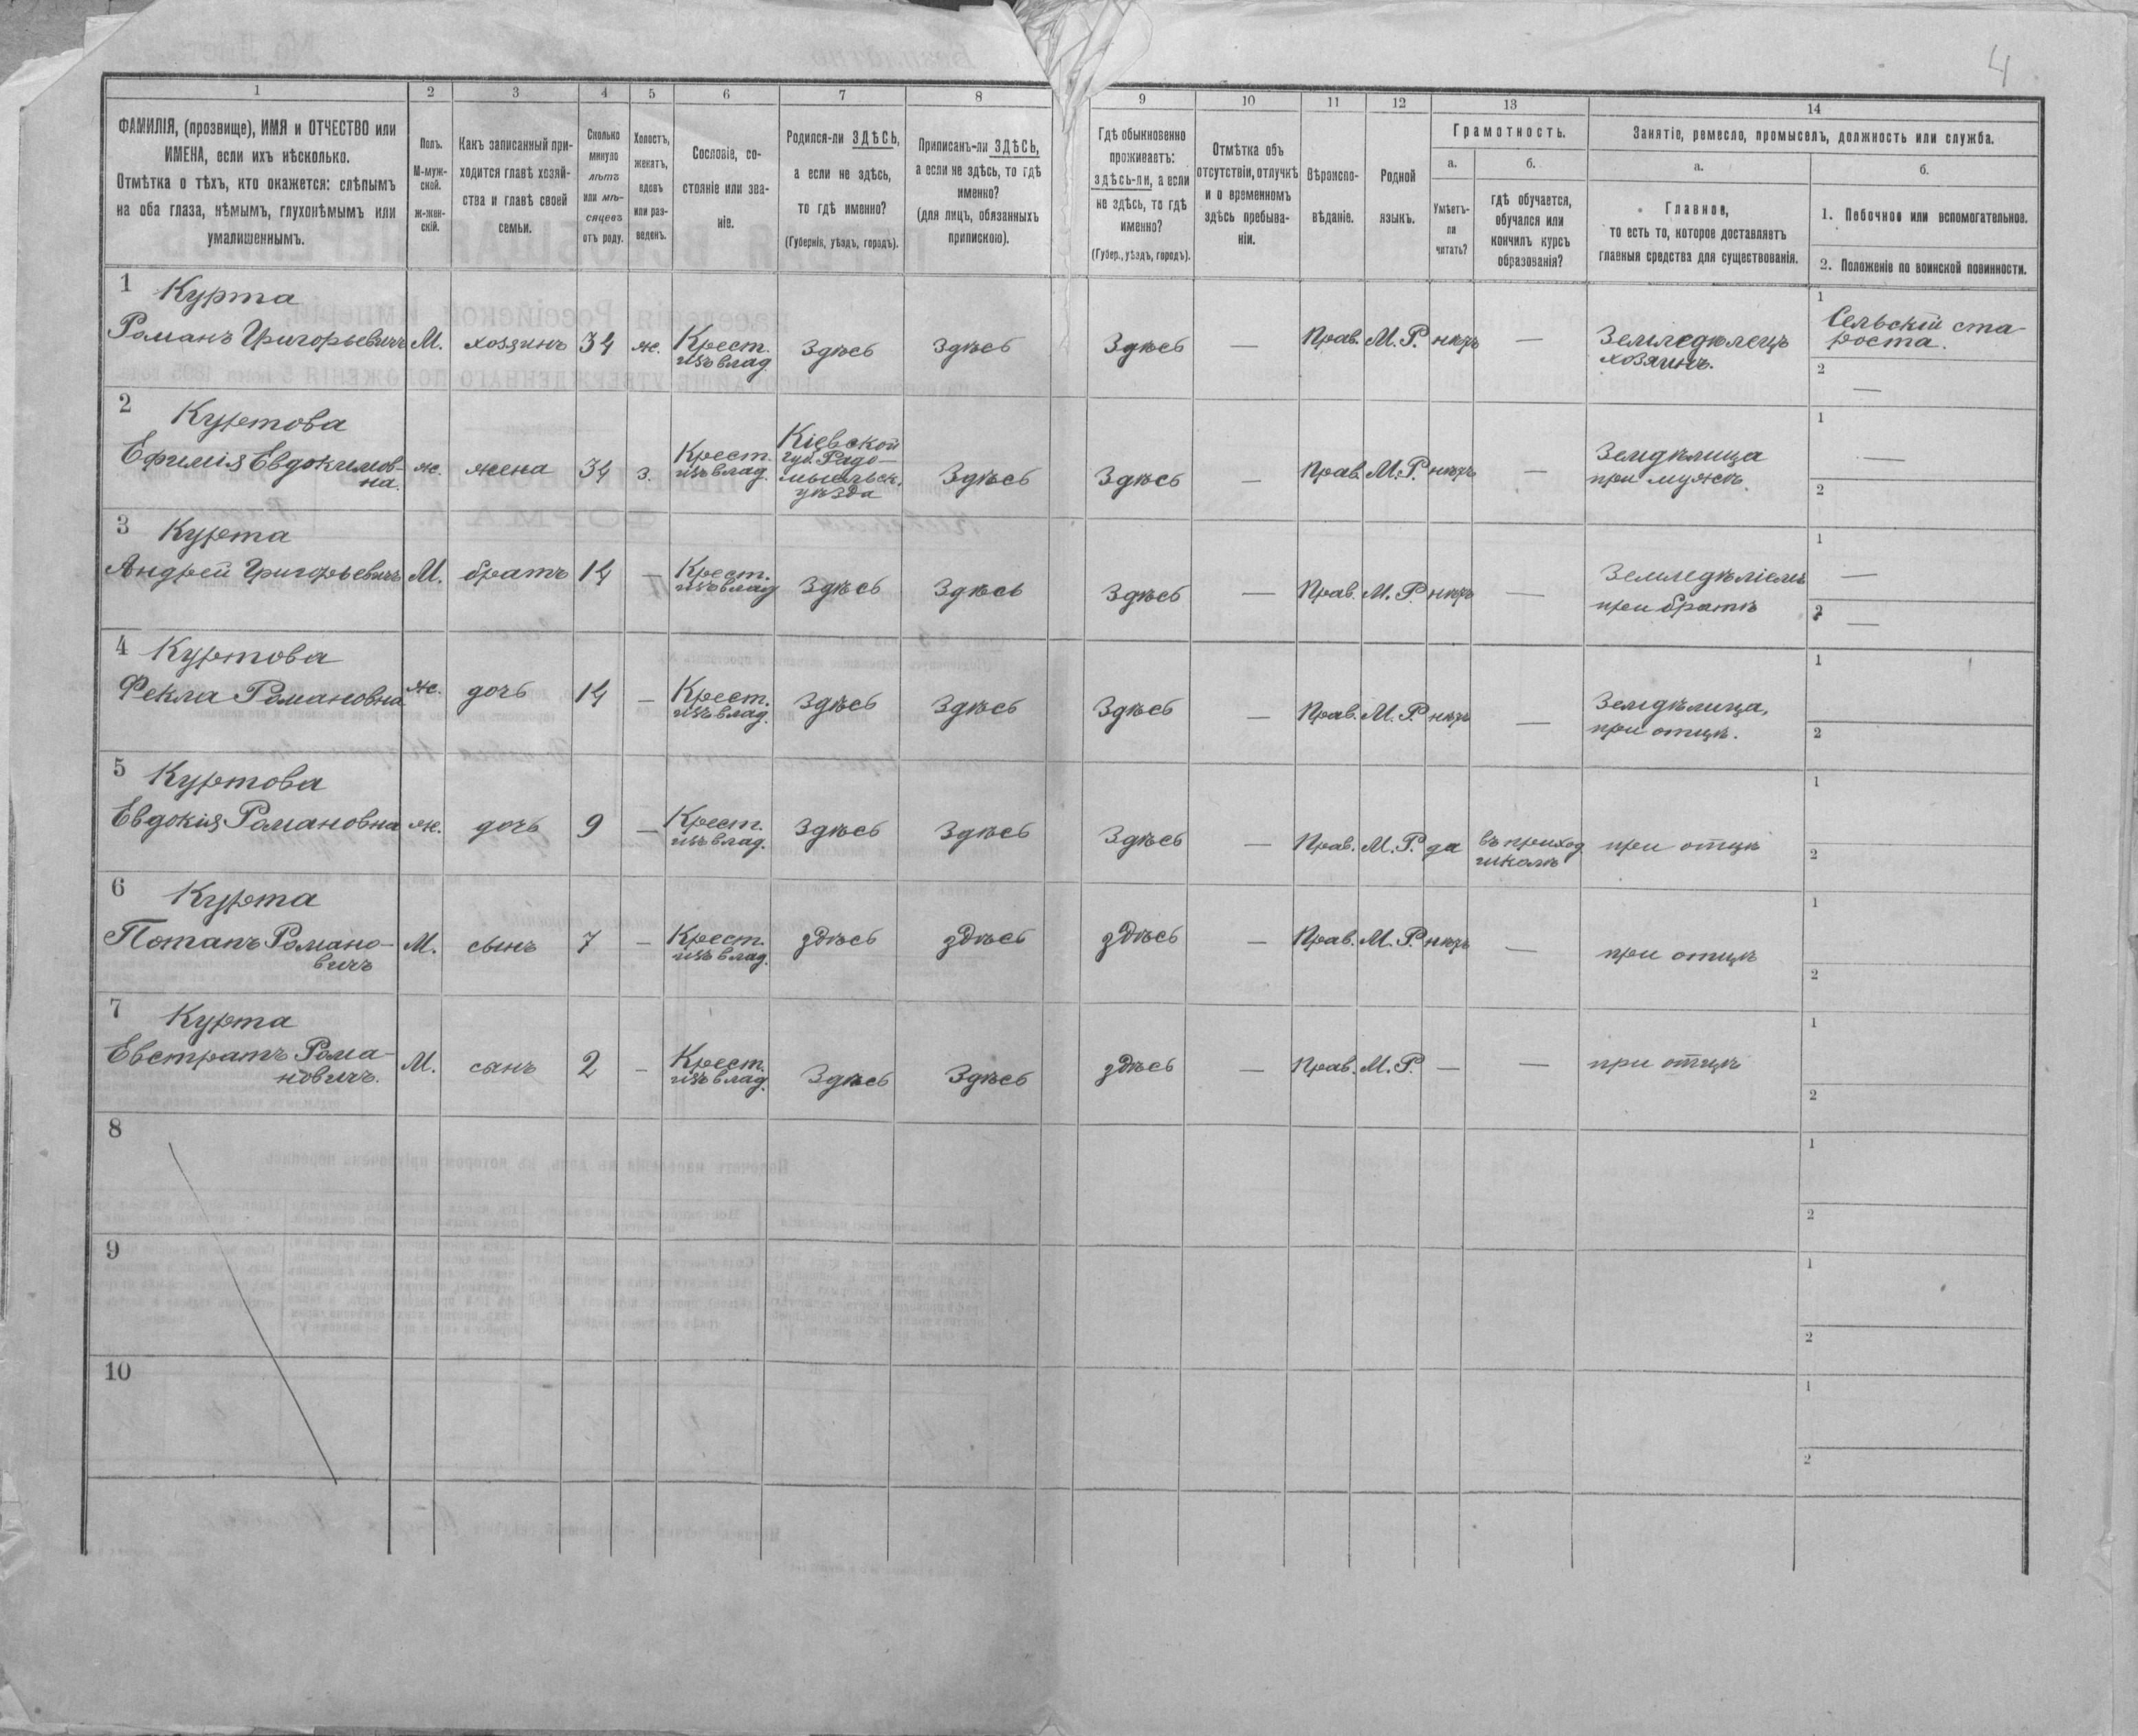 4
1 2 3 4 5 6 7 8 9 10 11 12 13 14
ФАМИЛІЯ, (прозвище), ИМЯ и ОТЧЕСТВО или
ИМЕНА, если ихъ нѣсколько.
Отмѣтка о тѣхъ, кто окажется: слѣпымъ
на оба глаза, нѣмымъ, глухонѣмымъ или
умалишеннымъ.
Полъ.
М-муж-
ской.
Ж-жен-
скій.
Какъ записанный при-
ходится главѣ хозяй-
ства и главѣ своей
семьи.
Сколько
минуло
лѣтъ
или мѣ-
сяцевъ
отъ роду.
Холостъ,
женатъ,
вдовъ
или раз-
веденъ.
Сословіе, со-
стояніе или зва-
ніе.
Родился-ли ЗДѢСЬ,
а если не здѣсь,
то гдѣ именно?
(Губернія, уѣздъ, городъ).
Приписанъ-ли ЗДѢСЬ,
а если не здѣсь, то гдѣ
именно?
(для лицъ, обязанныхъ
припискою).
Гдѣ обыкновенно
проживаетъ:
здѣсь-ли, а если
не здѣсь, то гдѣ
именно?
(Губер., уѣздъ, городъ).
Отмѣтка объ
отсутствіи, отлучкѣ
и о временномъ
здѣсь пребыва-
ніи.
Вѣроиспо-
вѣданіе.
Родной
языкъ.
Грамотность.
а.
Умѣетъ-
ли
читать?
б.
гдѣ обучается,
обучался или
кончилъ курсъ
образованія?
Занятіе, ремесло, промыселъ, должность или служба.
а.
Главное,
то есть то, которое доставляетъ
главныя средства для существованія.
б.
1. Побочное или вспомогательное.
2. Положеніе по воинской повинности.
1 Курта
Романъ Григорьевичъ М. хозяинъ 34 ж. Крест. изъ влад. Здѣсь Здѣсь Здѣсь — Прав. М. Р. нѣтъ — Земледѣлецъ
хозяинъ.
1 Сельскій ста
роста.
2 —
2 Куртова
Ефимія Евдокимов-
на. ж. жена 34 з. Крест. изъ влад. Кіевской
губ. Радо-
мысльск.
уѣзда Здѣсь Здѣсь — Прав. М. Р. нѣтъ — Земдѣлица
при мужѣ.
1 —
2
3 Курта
Андрей Григорьевичъ М. братъ 14 — Крест. изъ влад Здѣсь Здѣсь Здѣсь — Прав. М. Р. нѣтъ —
при братѣ
1 —
2 —
4 Куртова
Фекла Романовна ж. дочь 14 — Крест. изъ влад. Здѣсь Здѣсь Здѣсь — Прав. М. Р. нѣтъ — Земдѣлица,
при отцѣ.
1
2
5 Куртова
Евдокія Романовна ж. дочь 9 — Крест. изъ влад. Здѣсь Здѣсь Здѣсь — Прав. М. Р. да въ приход
школѣ при отцѣ
1
2
6 Курта
Потапъ Романо-
вичъ М. сынъ 7 — Крест. изъ влад. здѣсь здѣсь здѣсь — Прав. М. Р. нѣтъ — при отцѣ
1
2
7 Курта
Евстратъ Рома-
новичъ. М. сынъ 2 — Крест. изъ влад. Здѣсь Здѣсь здѣсь — Прав. М. Р. — — при отцѣ
1
2
8
1
2
9
1
2
10
1
2